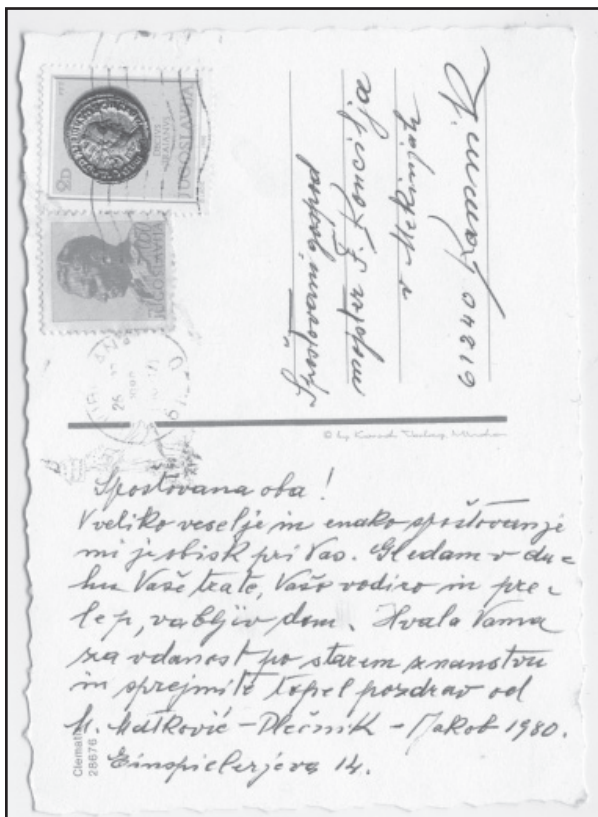 JUGOSLAVIJA
JUGOSLAVIJA
Spoštovani gospod
mojster F. Koncilja
v Mekinjah
61240 Kamnik
Spoštovana oba!
V veliko veselje in enako spoštovanje
mi je obisk pri Vas. Gledam v du=
hu Vaše trate, Vašo vodico in pre=
lep, vabljiv dom. Hvala Vama
za vdanost po starem znanstvu
in sprejmite topel pozdrav od
M. Matković - Plečnik - Jakob 1980.
Einspielerjeva 14.
28676